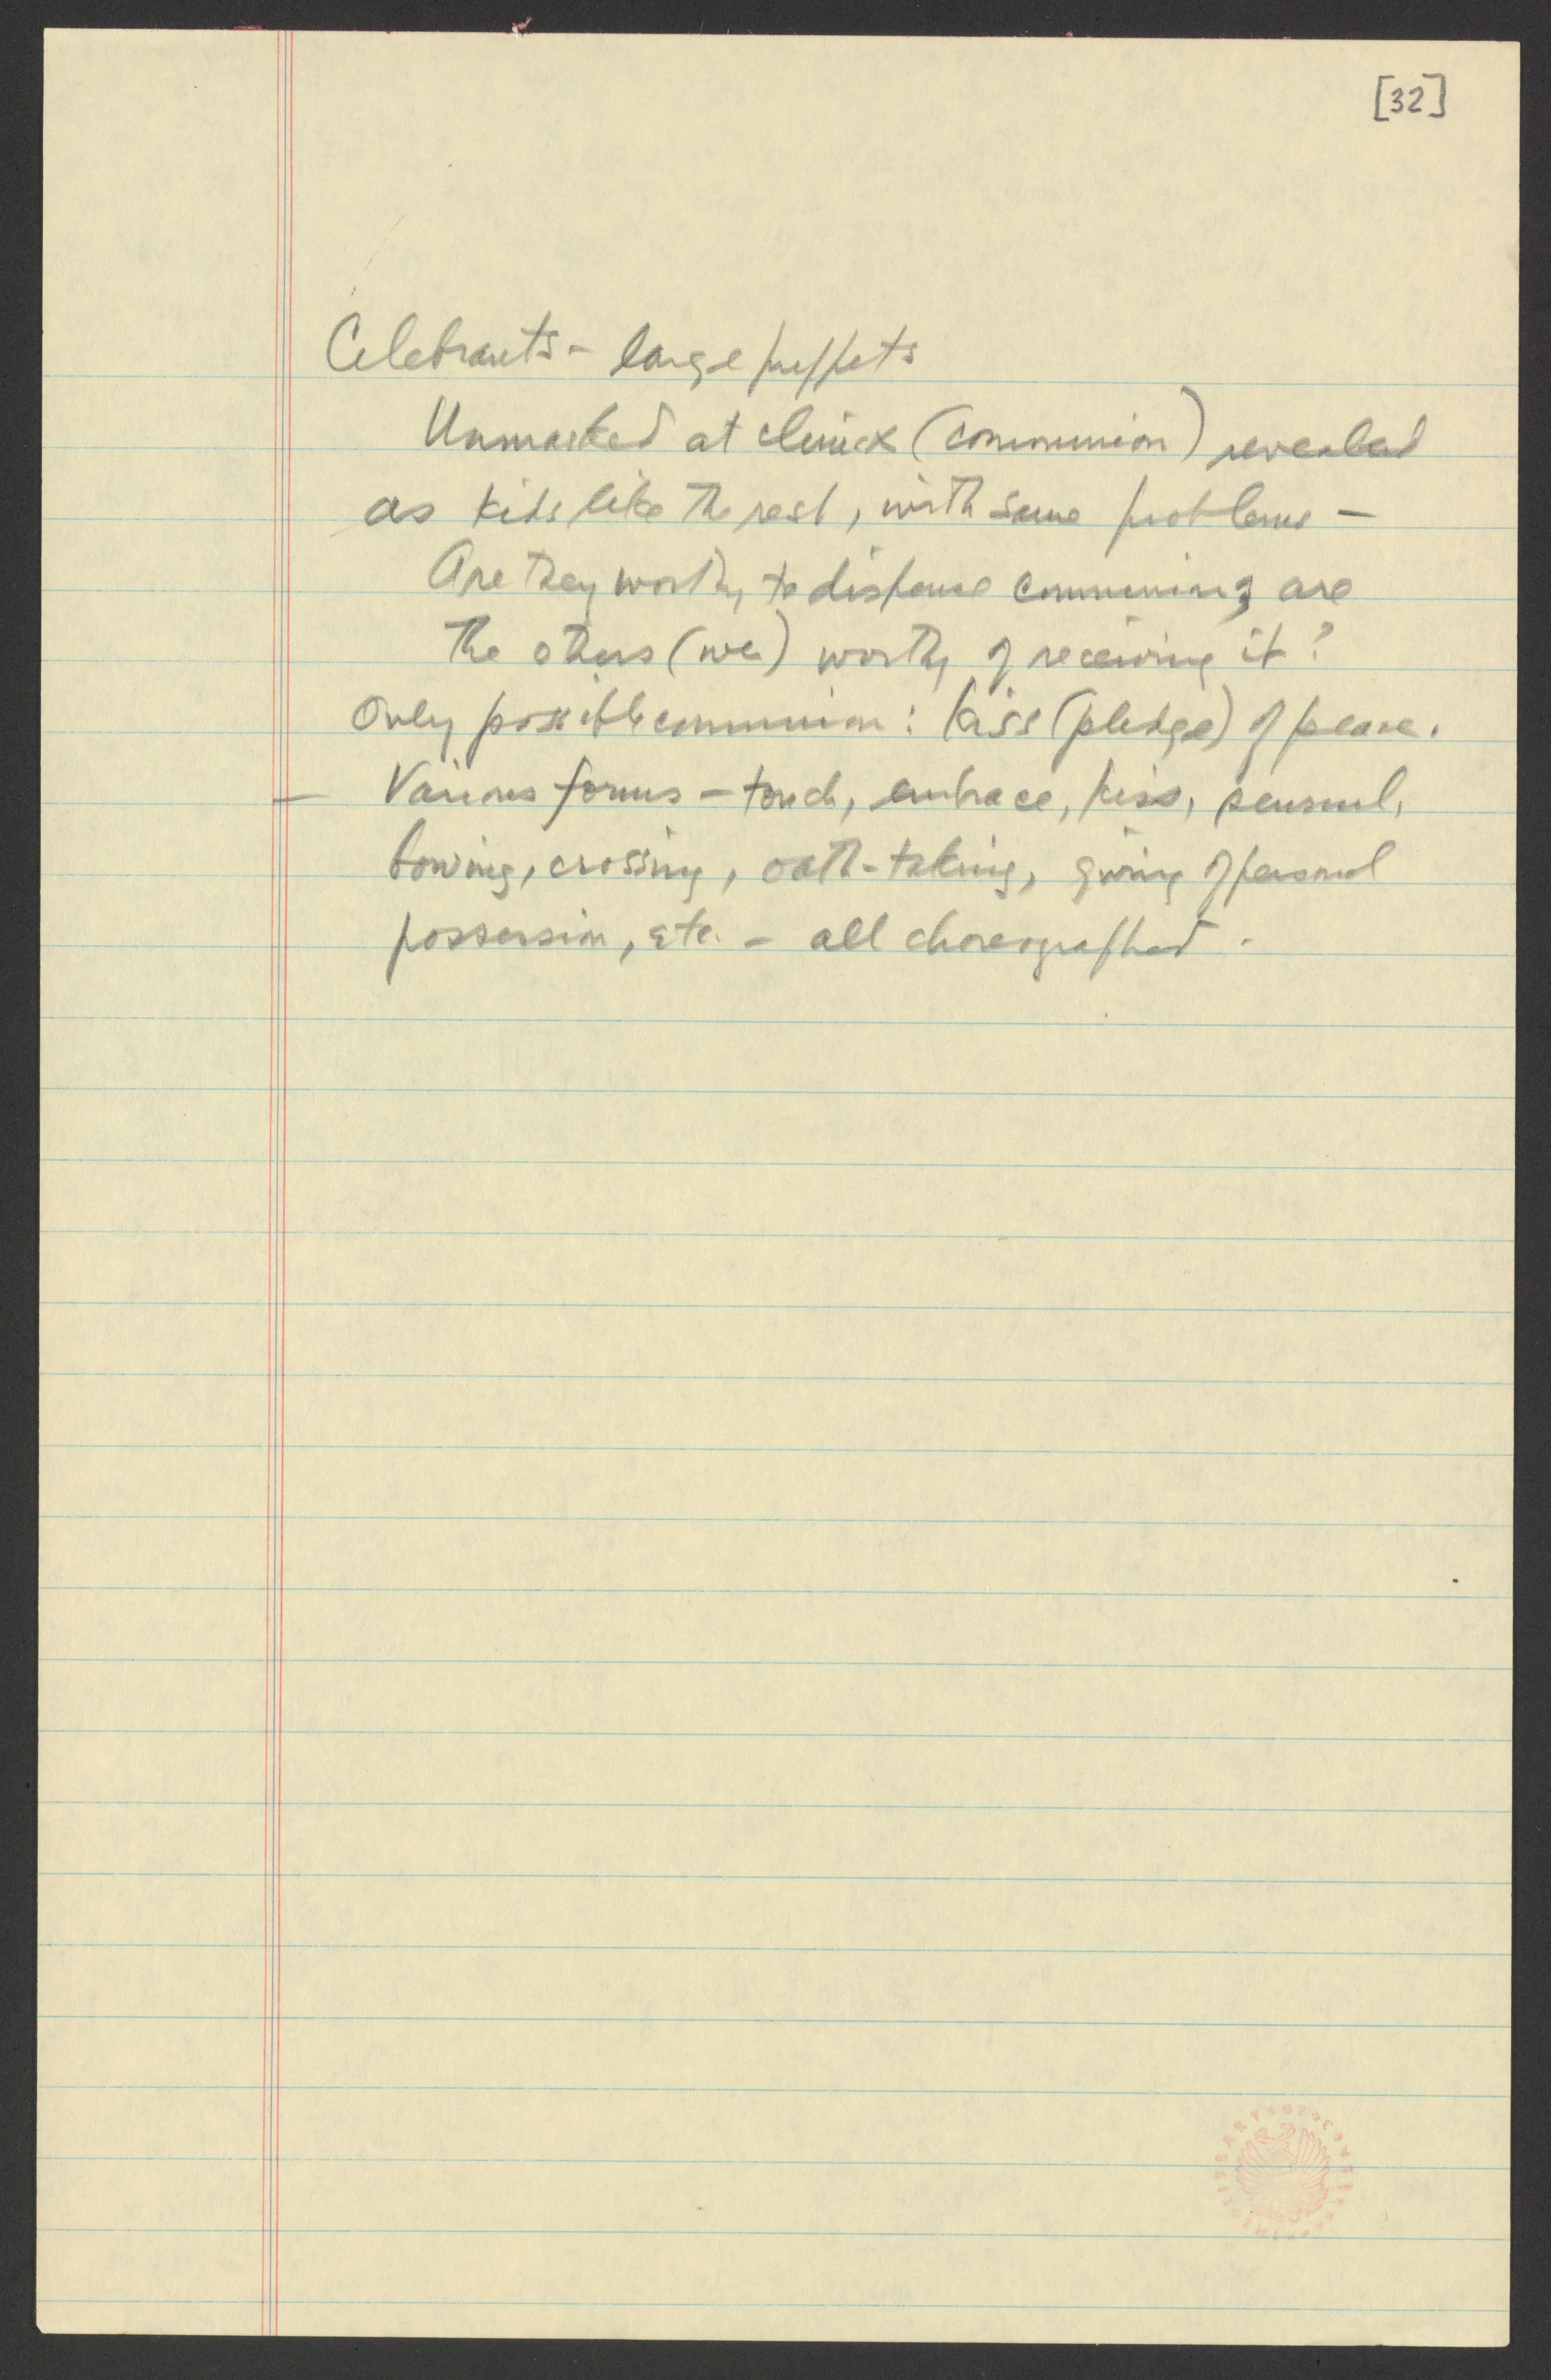 [32]
Celebrants - large puppets
Unmasked at climax (communion) revealed
as kids like the rest, with same problems -
Are they worthy to dispense communion; are
the others (we) worthy of receiving it?
Only possible communion: kiss (pledge) of peace.
— Various forms - touch, embrace, kiss, sensual,
bowing, crossing, oath-taking, giving of personal
possession, etc. - all choreographed.